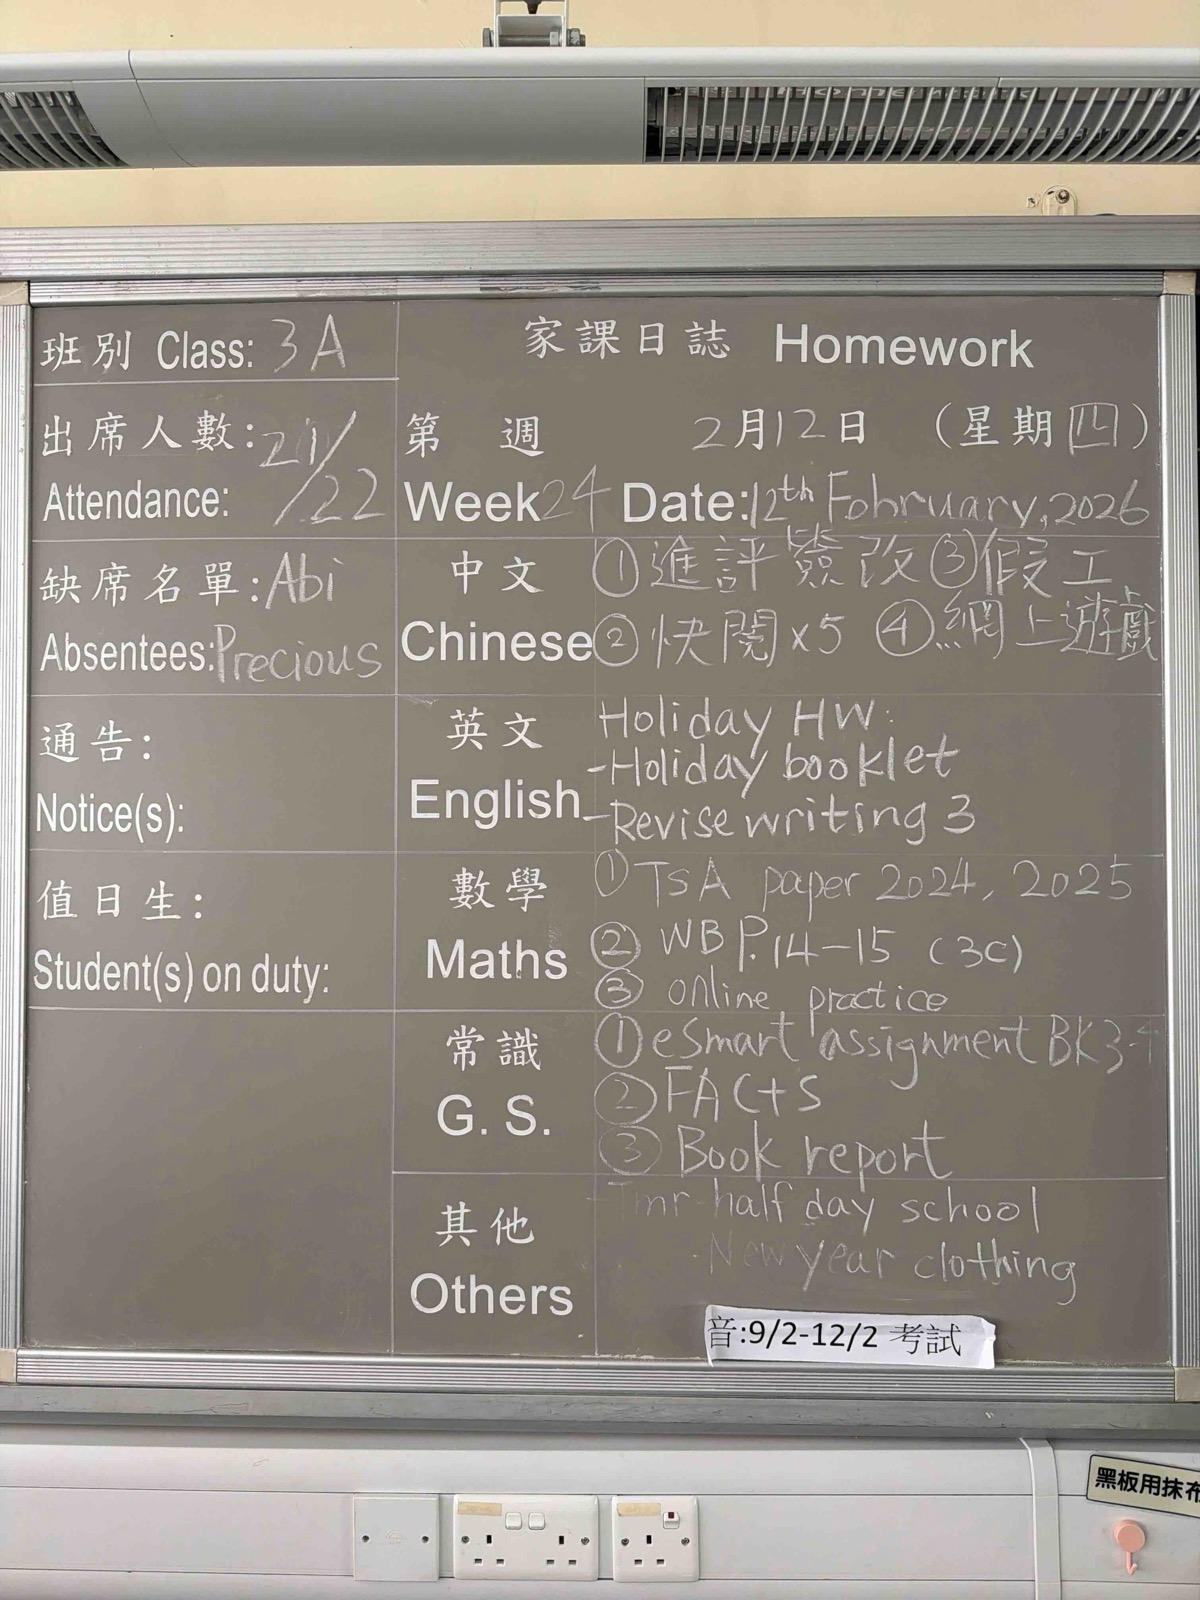 班別 Class: 3A
家課日誌 Homework
出席人數: 21/22
Attendance:
第 週 2月12日 (星期四)
Week 24 Date: 12th Fobruary, 2026
缺席名單: Abi
Absentees: Precious
中文
Chinese
①進評簽改 ③假工
②快閱x5 ④網上遊戲
通告:
Notice(s):
英文
English
Holiday HW:
-Holiday booklet
-Revise writing 3
值日生:
Student(s) on duty:
數學
Maths
① TSA paper 2024, 2025
② WB P.14-15 (3C)
③ online practice
常識
G. S.
① eSmart assignment BK3-4
② FACts
③ Book report
其他
Others
-Tmr-half day school
-New year clothing
音:9/2-12/2 考試
黑板用抹布